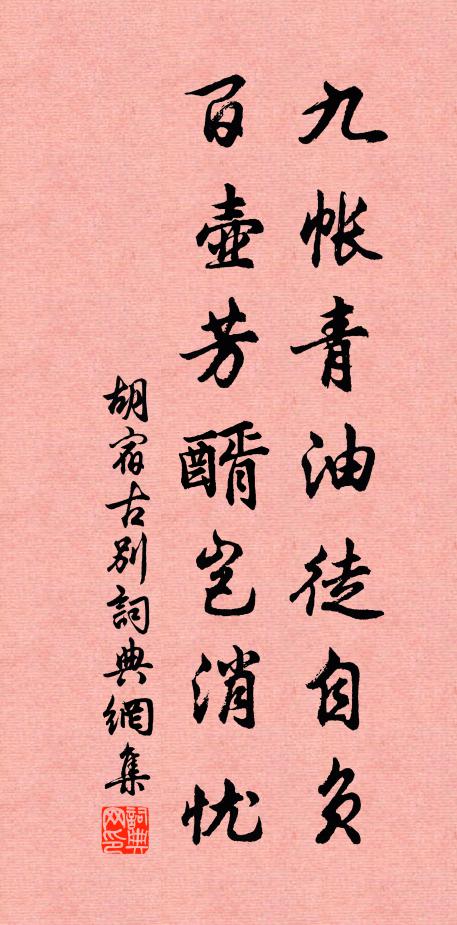 九帐青油徒自负
百壶芳醑岂消忧
胡宿古别詞典網集
詞典网印